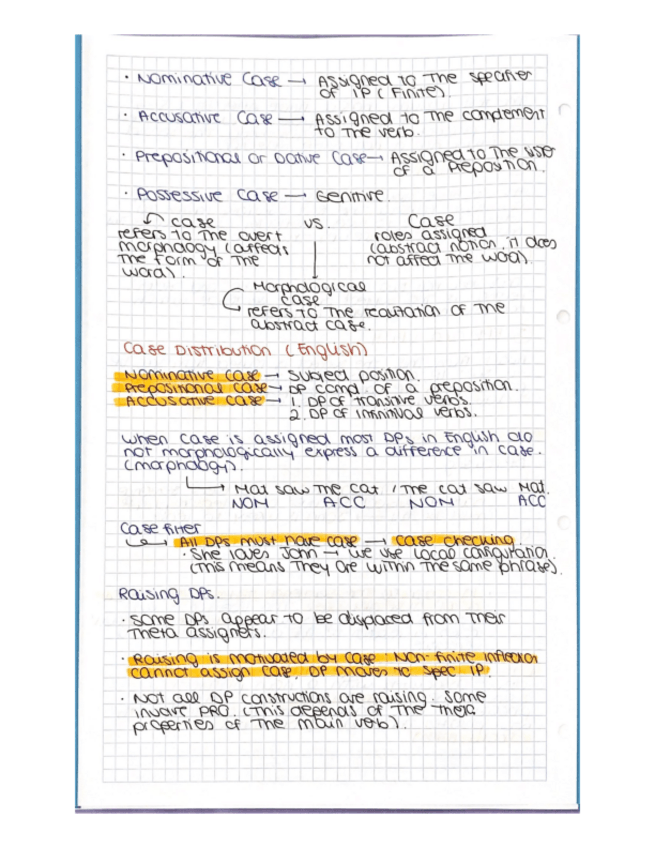 · Nominative Case → Assigned to the specifier
of IP (Finite).
· Accusative Case → Assigned to the complement
to the verb.
· Prepositional or Dative Case → Assigned to the user
of a preposition.
· Possessive Case → Genitive.
case vs. Case
refers to the overt
morphology (affects
the form of the
word).
roles assigned
(abstract notion, it does
not affect the word)
Morphological
case
refers to the realization of the
abstract case.
Case Distribution (English)
Nominative case → Subject position.
Prepositional case → DP comp. of a preposition.
Accusative case → 1. DP of transitive verbs.
2. DP of infinitival verbs.
When case is assigned most DPs in English do
not morphologically express a difference in case.
(morphology).
→ Mat saw the cat / The cat saw Mat.
NOM ACC NOM ACC
Case filter
→ All DPs must have case → case checking.
· She loves John → We use local configuration.
(this means they are within the same phrase).
Raising DPs.
· Some DPs appear to be displaced from their
theta assigners.
· Raising is motivated by case: Non-finite inflection
cannot assign case, DP moves to Spec IP.
· Not all DP constructions are raising. Some
involve PRO. (this depends of the theta
properties of the main verb).